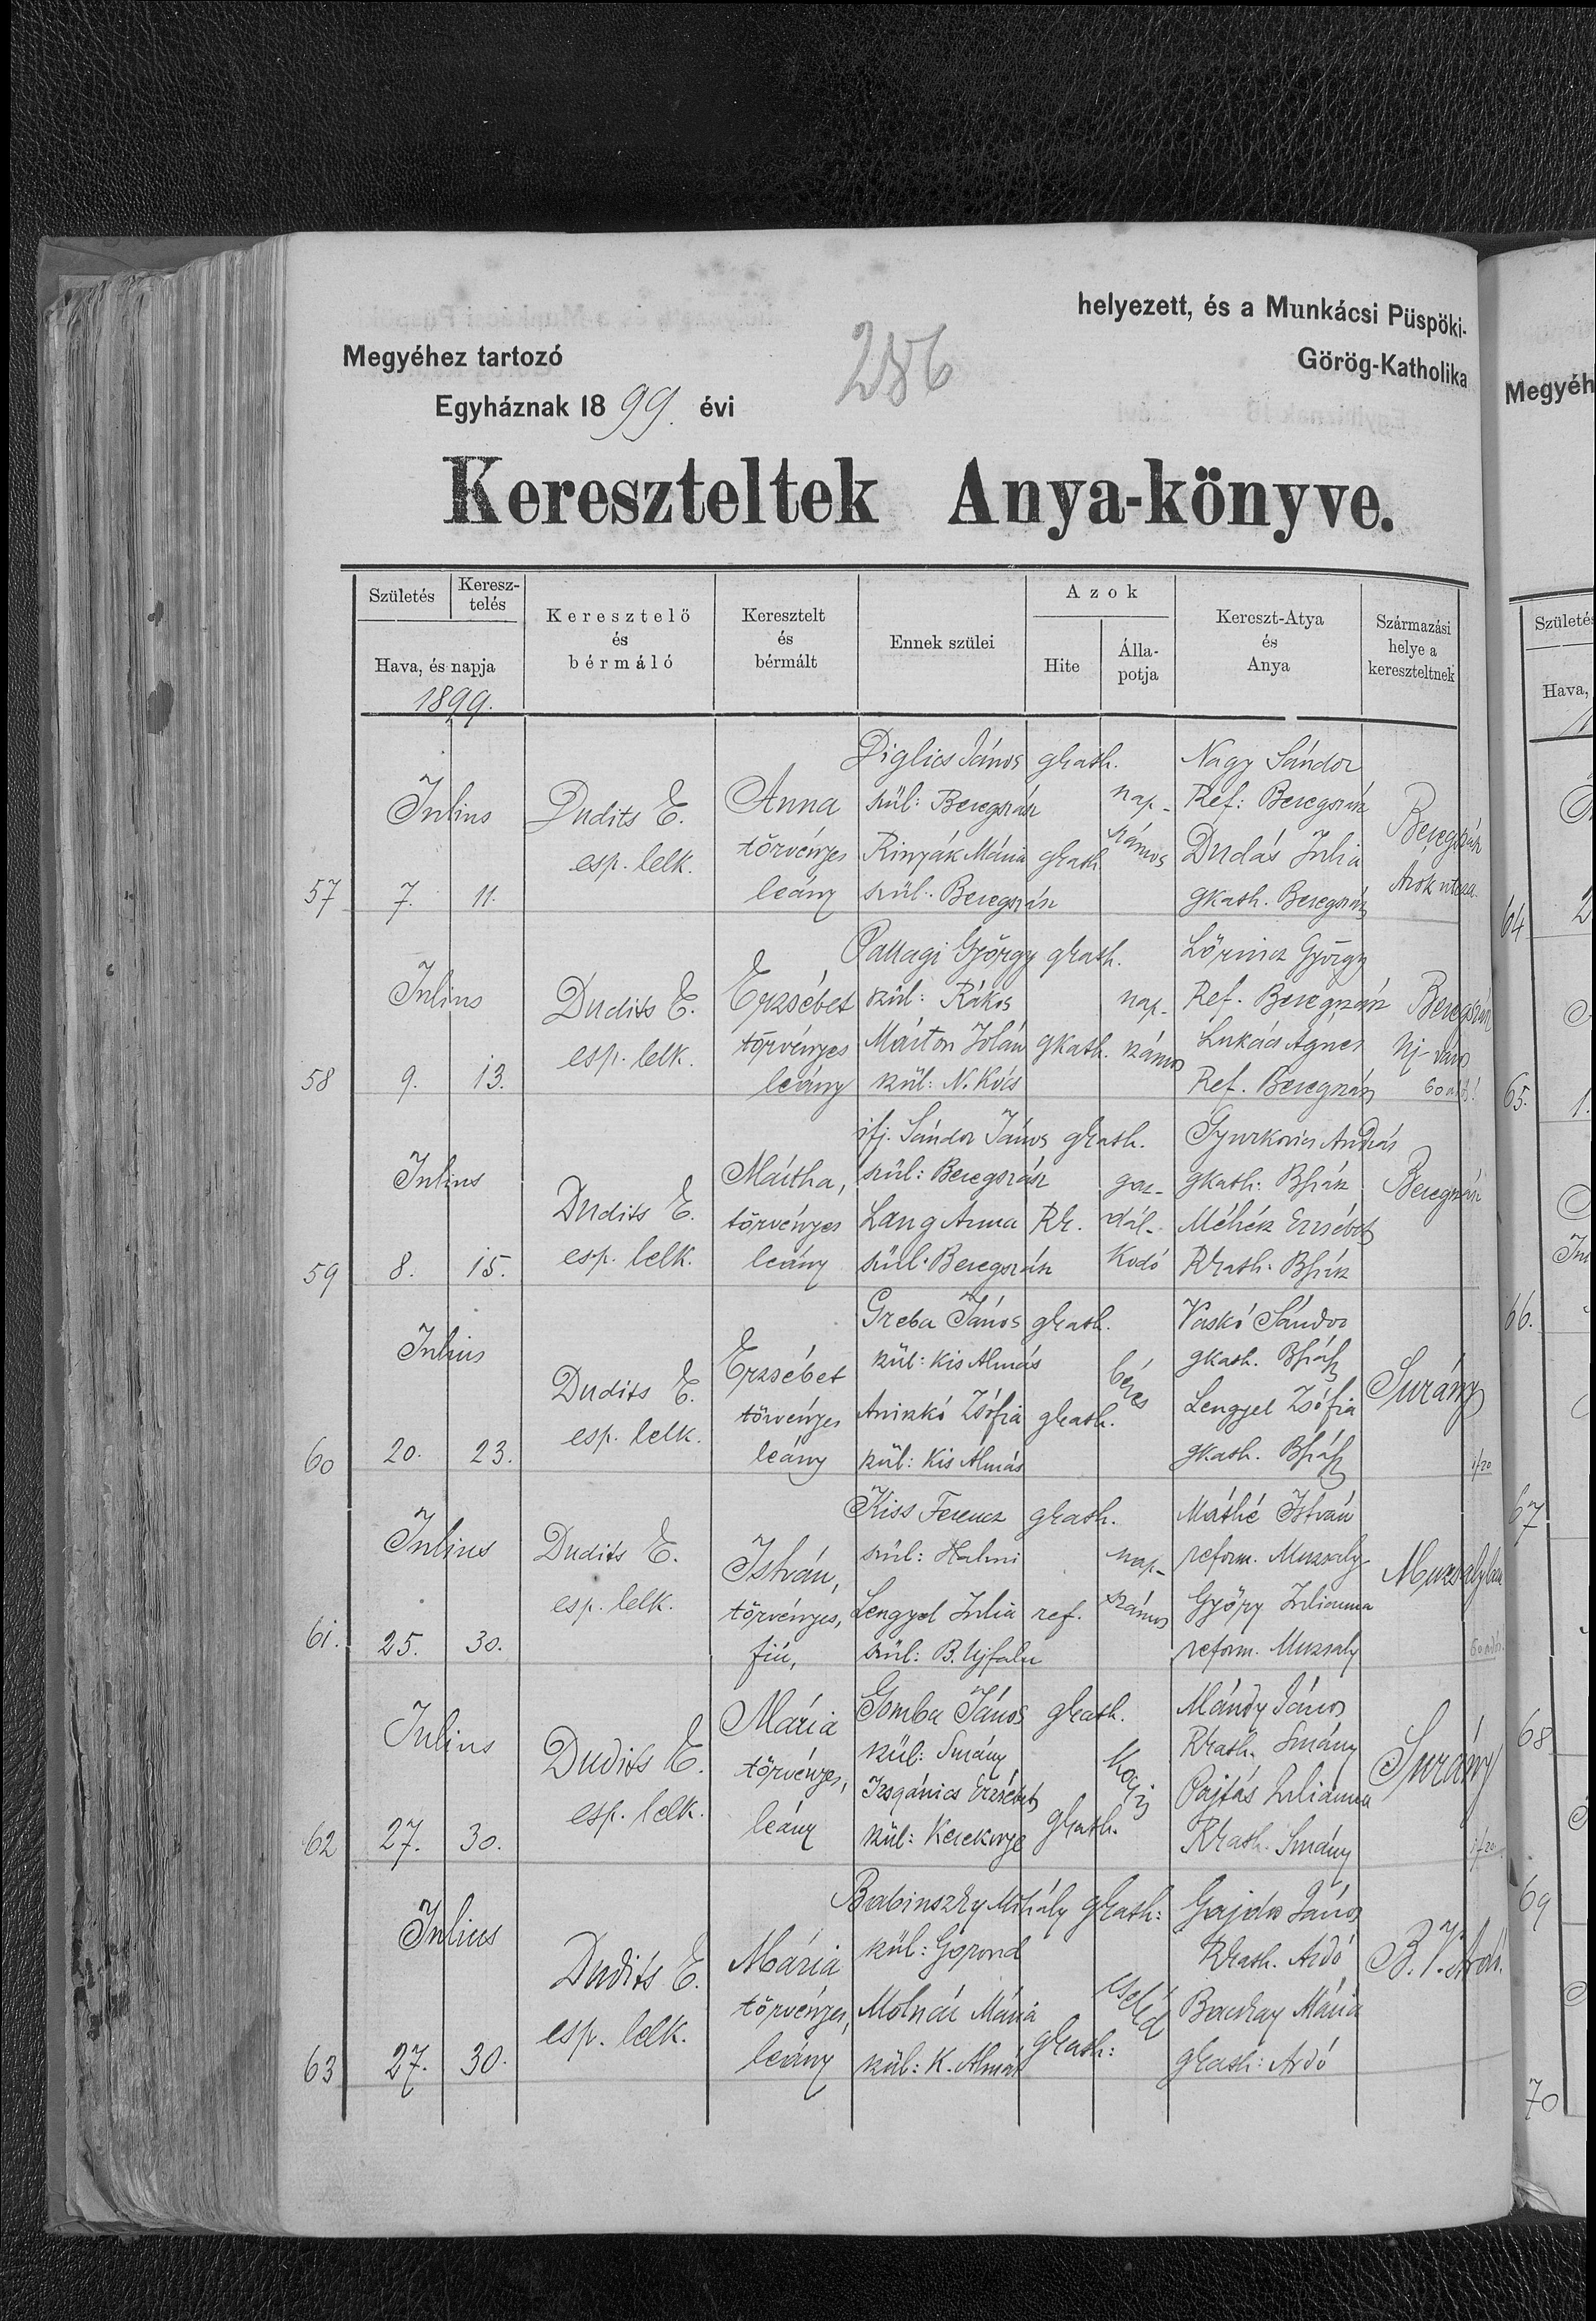 helyezett, és a Munkácsi Püspöki-
Megyéhez tartozó
Görög-Katholika
Egyháznak 1899. évi
286
Kereszteltek Anya-könyve.
Születés
Keresz-
telés
Hava, és napja
1899.
Keresztelő
és
bérmáló
Keresztelt
és
bérmált
Ennek szülei
Azok
Hite
Álla-
potja
Kereszt-Atya
és
Anya
Származási
helye a
kereszteltnek
57
Julius
7. 11.
Dudits E.
esp. lelk.
Anna
törvényes
leány
Diglics János gkath.
szül: Beregszász
Rinyák Mária gkath.
szül. Beregszász
nap-
számos
Nagy Sándor
Ref: Beregszász
Dudás Julia
gkath. Beregszász
Beregszász
Árok utcza
58
Julius
9. 13.
Dudits E.
esp. lelk.
Erzsébet
törvényes
leány
Pallagi György gkath.
szül: Rákos
Márton Jolán gkath.
szül: N.
nap-
számos
Lőrincz György
Ref. Beregszász
Lukács Ágnes
Ref. Beregszász
Beregszász
Uj-város
59
Julius
8. 15.
Dudits E.
esp. lelk.
Mártha,
törvényes
leány
ifj. Sándor János gkath.
szül: Beregszász
Lang Anna Rk.
szül. Beregszász
gaz-
dál-
kodó
Gyurkovics András
gkath. Bszász
Méhész Erzsébet
Rkath. Bszász
Beregszász
60
Julius
20. 23.
Dudits E.
esp. lelk.
Erzsébet
törvényes
leány
Greba János gkath.
szül: Kis Almás
Aniszkó Zsófia gkath.
szül: Kis Almás
béres
Vaskó Sándor
gkath. Bszász
Lengyel Zsófia
gkath. Bszász
Surány
61.
Julius
25. 30.
Dudits E.
esp. lelk.
István,
törvényes,
fiú,
Kiss Ferencz gkath.
szül: Halmi
Lengyel Julia ref.
szül: B. Ujfalu
nap-
számos
Máthé István
reform. Muzsaly
Győry Julianna
reform. Muzsaly
Muzsalyban
62
Julius
27. 30.
Dudits E.
esp. lelk.
Mária
törvényes,
leány
Gomba János gkath.
szül: Surány
Erzsébet
szül: gkath.
kocsis
Mándy János
Rkath. Surány
Pajtás Julianna
Rkath. Surány
Surány
63
Julius
27. 30.
Dudits E.
esp. lelk.
Mária
törvényes,
leány
Babinszky Mihály gkath:
szül: Gorond
Molnár Mária
gkath:
szül: K. Almás
cseléd
Gajdos János
Rkath. Ardó
Mária
gkath: Ardó
B. V. Ardó.
Megyéh
Születés
Hava,
64
65.
66.
67
68
69
70